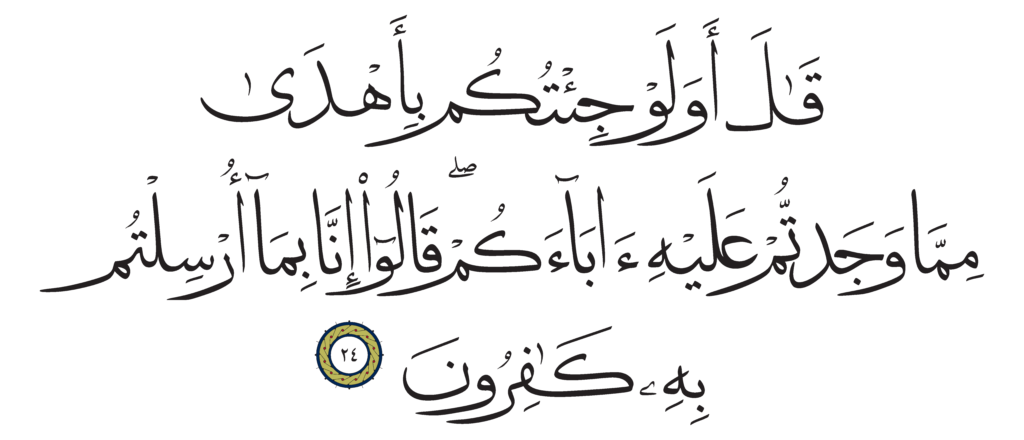 قَٰلَ أَوَلَوْ جِئْتُكُم بِأَهْدَىٰ
مِمَّا وَجَدتُّمْ عَلَيْهِ ءَابَآءَكُمْ ۖ قَالُوٓا۟ إِنَّا بِمَآ أُرْسِلْتُم
بِهِۦ كَٰفِرُونَ ٢٤